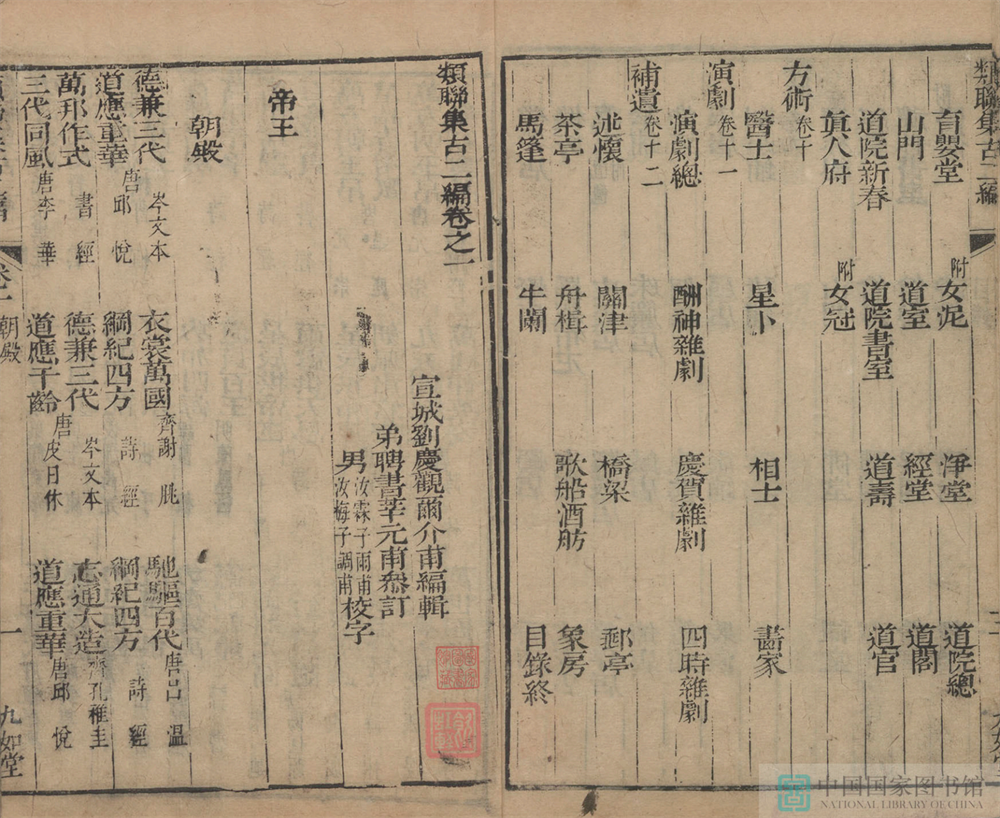 類聯集古二編
育嬰堂 附女泥 淨堂 道院總
山門 道室 經堂 道閣
道院新春 道院書室 道壽 道官
眞人府 附女冠
方術卷十
醫士 星卜 相士 畫家
演劇卷十一
演劇總 酬神雜劇 慶賀雜劇 四時雜劇
補遺卷十二
述懷 關津 橋梁 郵亭
茶亭 舟楫 歌船酒舫 象房
馬篷 牛闌 目錄終
類聯集古二編卷之一
宣城劉慶觀爾介甫編輯
弟聘書莘元甫叅訂
男汝霖子雨甫汝梅子調甫校字
帝王
朝殿
德兼三代 岑文本 衣裳萬國 齊謝朓 馳驅百代 唐呂溫
道應重華 唐邱悅 綱紀四方 詩經 綱紀四方 詩經
萬邦作式 書經 德兼三代 岑文本 志通大造 齊孔稚圭
三代同風 唐李華 道應千齡 唐皮日休 道應重華 唐邱悅
朝殿 一 九如堂
中国国家图书馆
NATIONAL LIBRARY OF CHINA